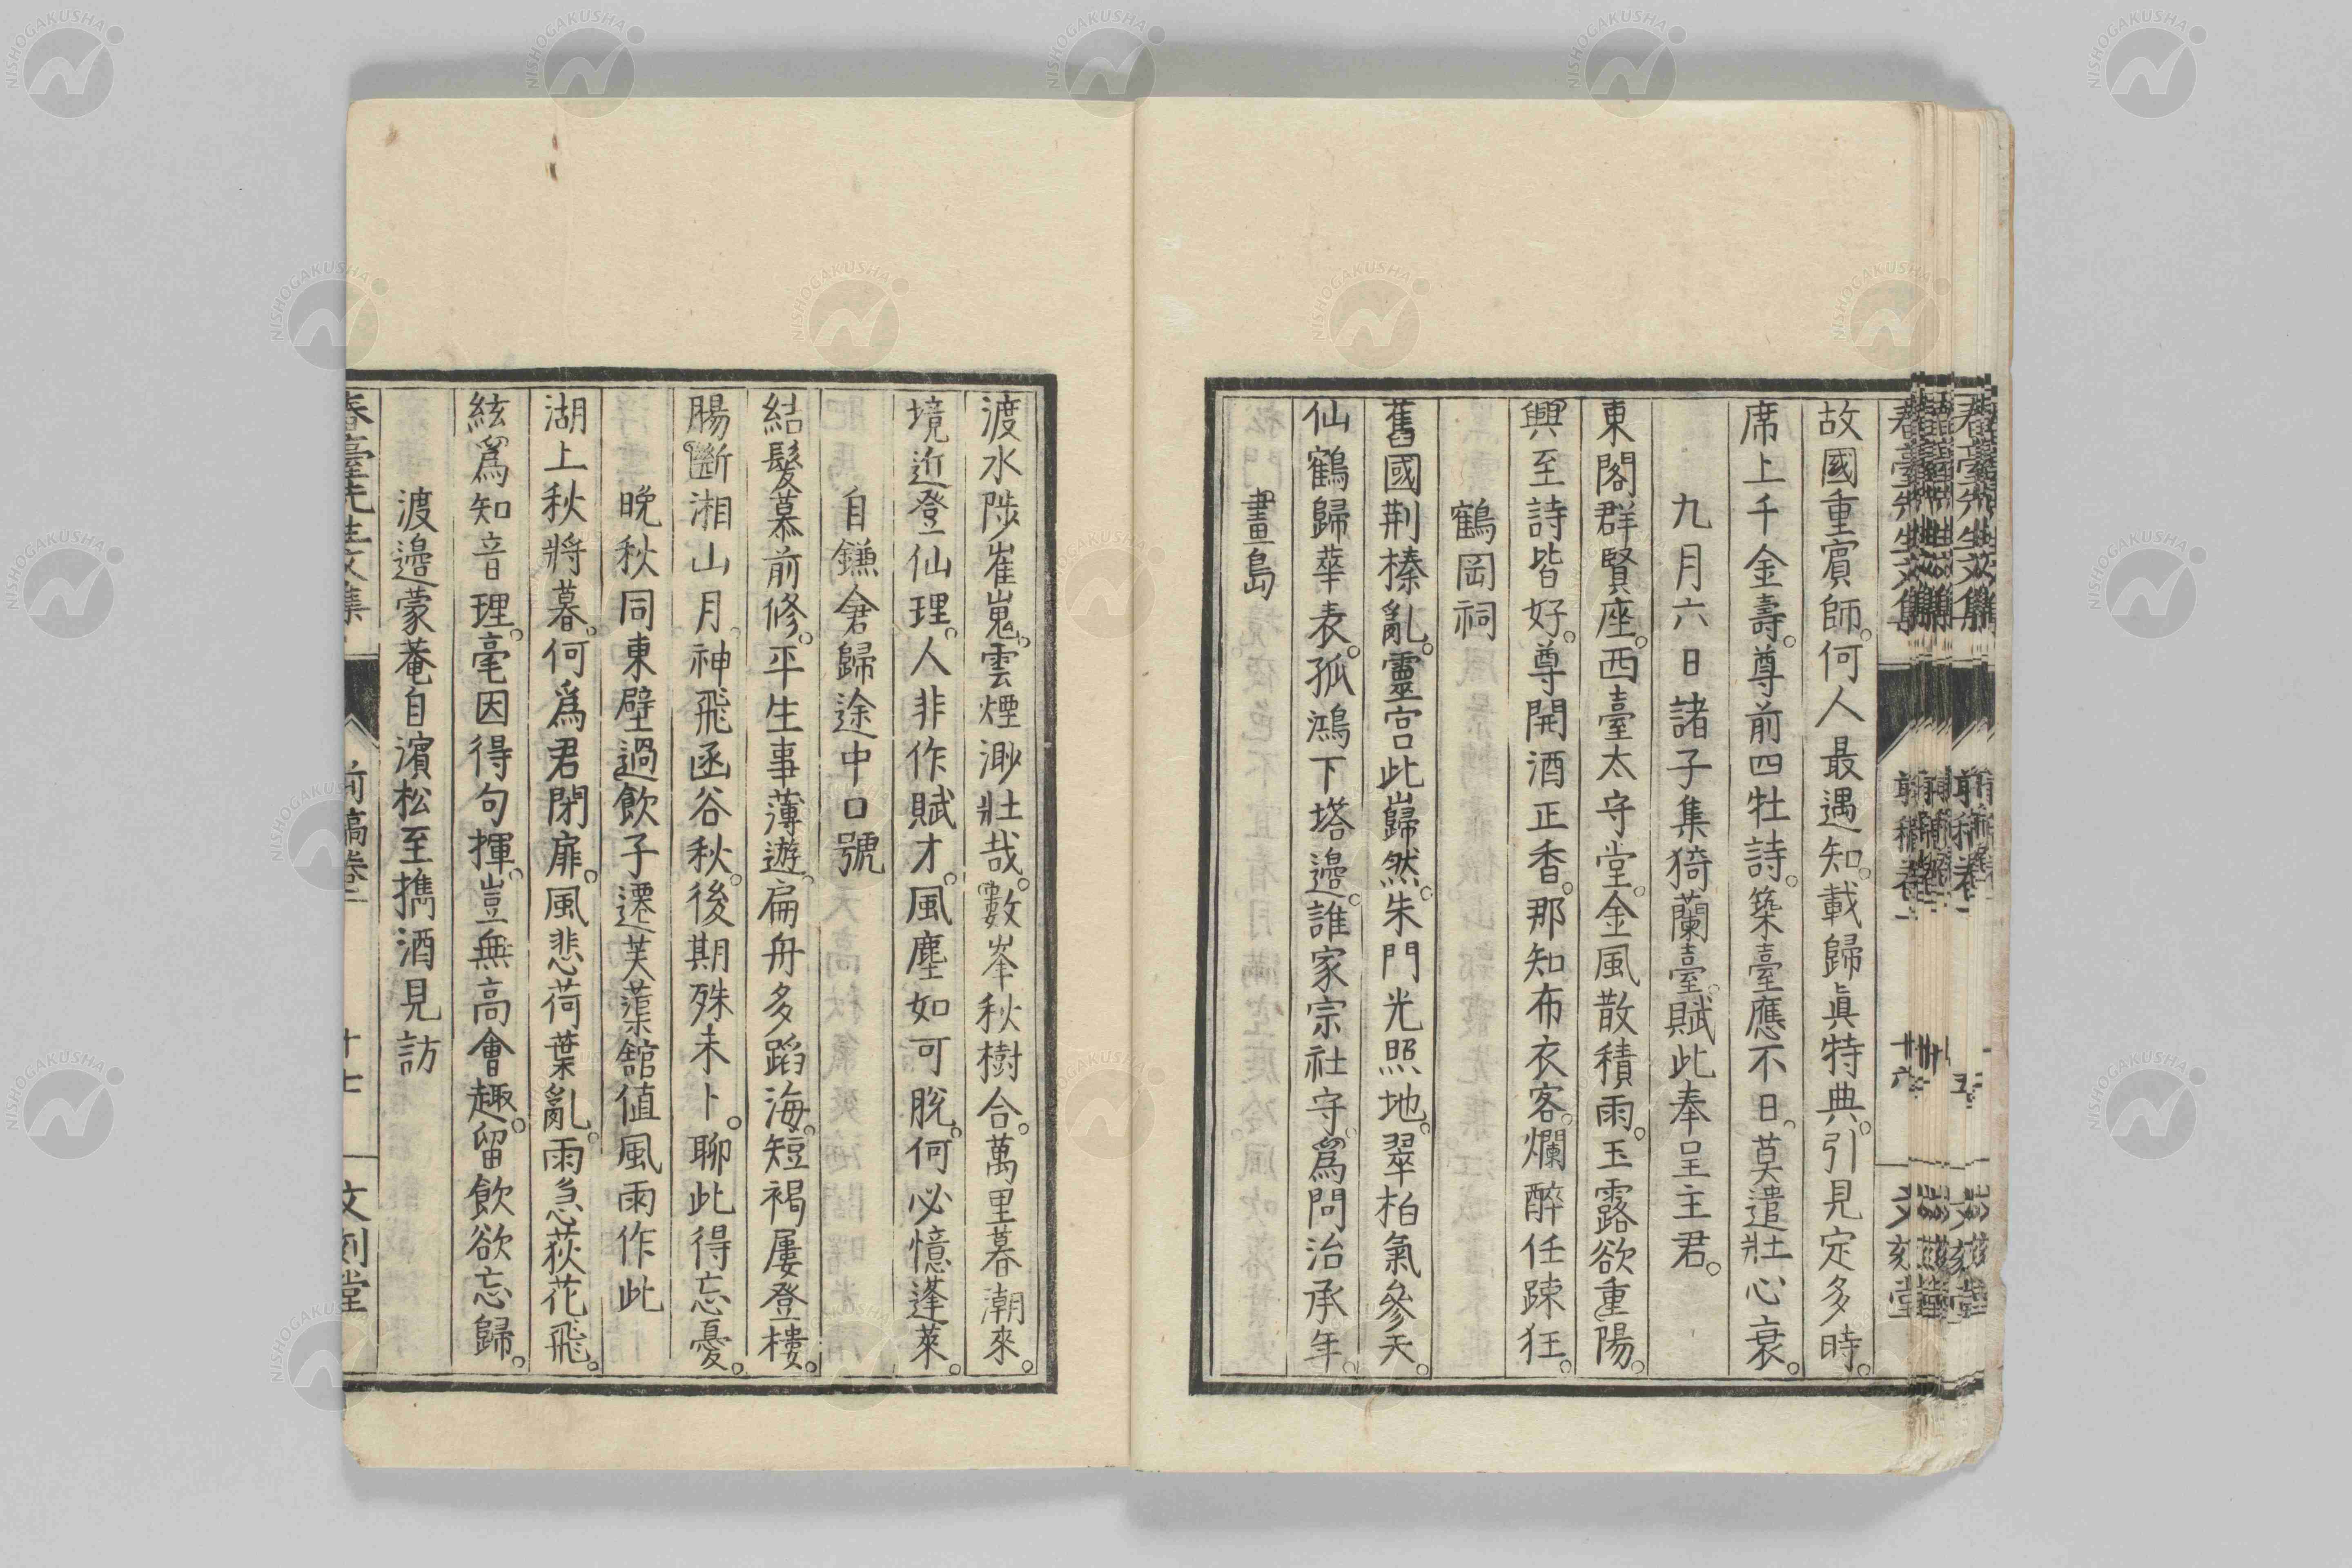 故國重賓師。何人最遇知。載歸眞特典。引見定多時。
席上千金壽。尊前四牡詩。築臺應不日。莫遣壯心衰。
九月六日諸子集猗蘭臺。賦此奉呈主君。
東閣群賢座。西臺太守堂。金風散積雨。玉露欲重陽。
興至詩皆好。尊開酒正香。那知布衣客。爛醉任踈狂。
鶴岡祠
舊國荆榛亂。靈宮此巋然。朱門光照地。翠柏氣參天。
仙鶴歸華表。孤鴻下塔邉。誰家宗社守。爲問治承年。
畫島
渡水陟崔嵬。雲煙渺壯哉。數峯秋樹合。萬里暮潮來。
境近登仙理。人非作賦才。風塵如可脫。何必憶蓬萊。
自鎌倉歸途中口號
結髮慕前修。平生事薄遊。扁舟多蹈海。短褐屢登樓。
腸斷湘山月。神飛函谷秋。後期殊未卜。聊此得忘憂。
晚秋同東壁過飲子遷芙蕖舘值風雨作此
湖上秋將暮。何爲君閉扉。風悲荷葉亂。雨急荻花飛。
絃爲知音理。毫因得句揮。豈無高會趣。留飲欲忘歸。
渡邉蒙菴自濱松至攜酒見訪
春臺先生文集 前稿卷二 十七 文刻堂